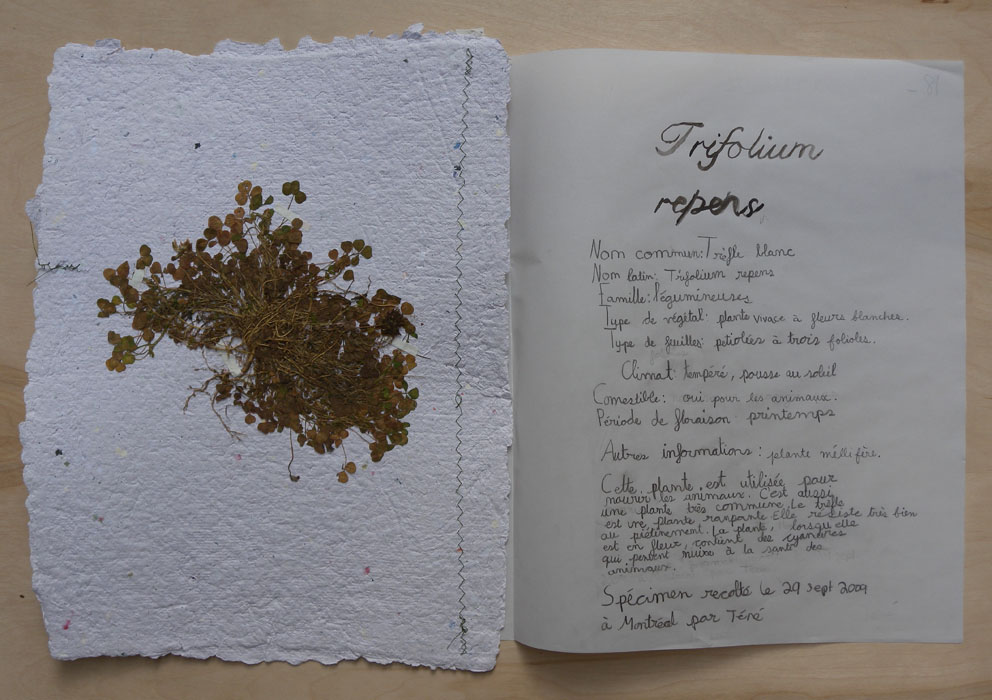 81
Trifolium
repens
Nom commun: Trèfle blanc
Nom latin: Trifolium repens
Famille: légumineuses
Type de végétal: plante vivace à fleurs blanches.
Type de feuilles: petiolées à trois folioles.
Climat: tempéré, pousse au soleil
Comestible: oui pour les animaux.
Période de floraison printemps
Autres informations: plante méllifère.
Cette plante est utilisée pour
nourrir les animaux. C'est aussi
une plante très commune. Le trèfle
est une plante ranpante. Elle résiste très bien
au piétinement. La plante, lorsqu'elle
est en fleur, contient des cyanures
qui peuvent nuire à la santé des
animaux.
Spécimen recolté le 29 sept 2009
à Montréal par Téné